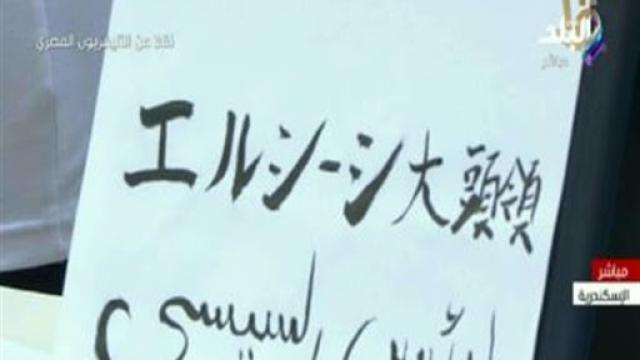 البلد
نقلا عن التليفزيون المصري
مباشر
エルシーシ大頭領
مباشر
الإسكندرية